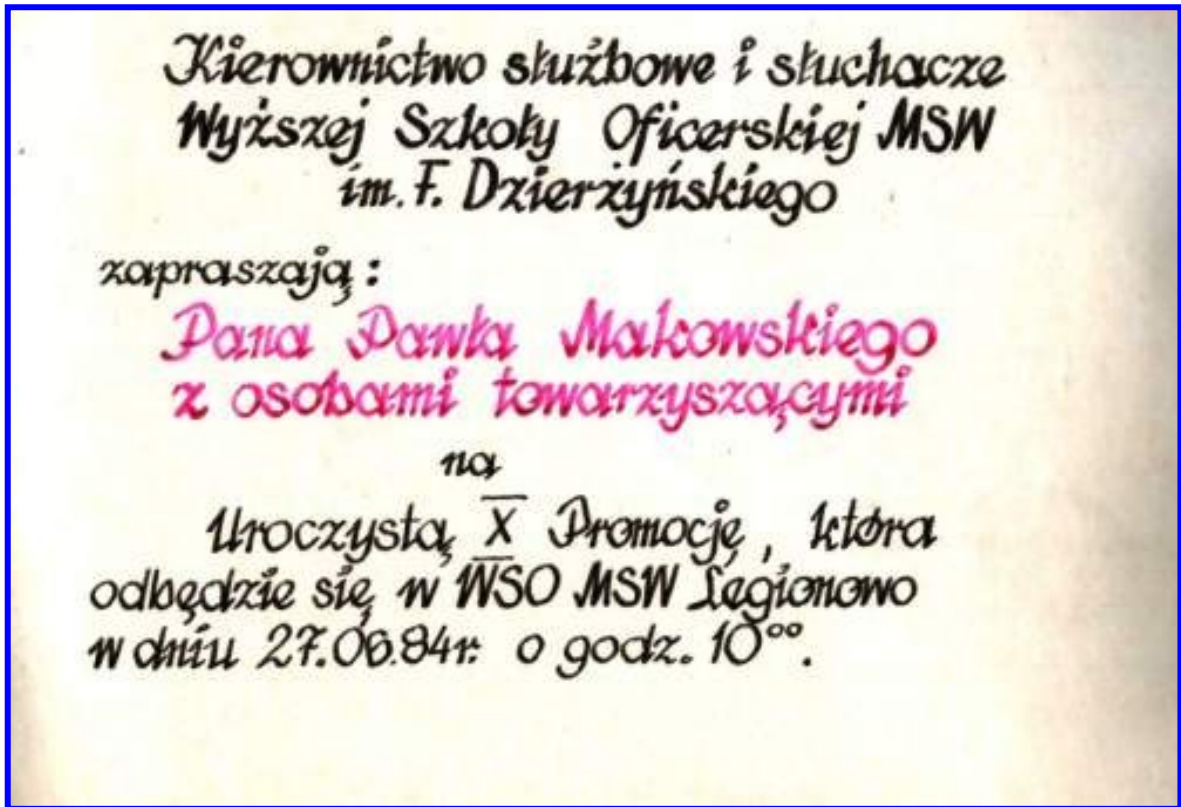 Kierownictwo służbowe i słuchacze
Wyższej Szkoły Oficerskiej MSW
im. F. Dzierżyńskiego
zapraszają :
Pana Pawła Makowskiego
z osobami towarzyszącymi
na
Uroczystą X Promocję , która
odbędzie się w WSO MSW Legionowo
w dniu 27.06.84r. o godz. 10⁰⁰.